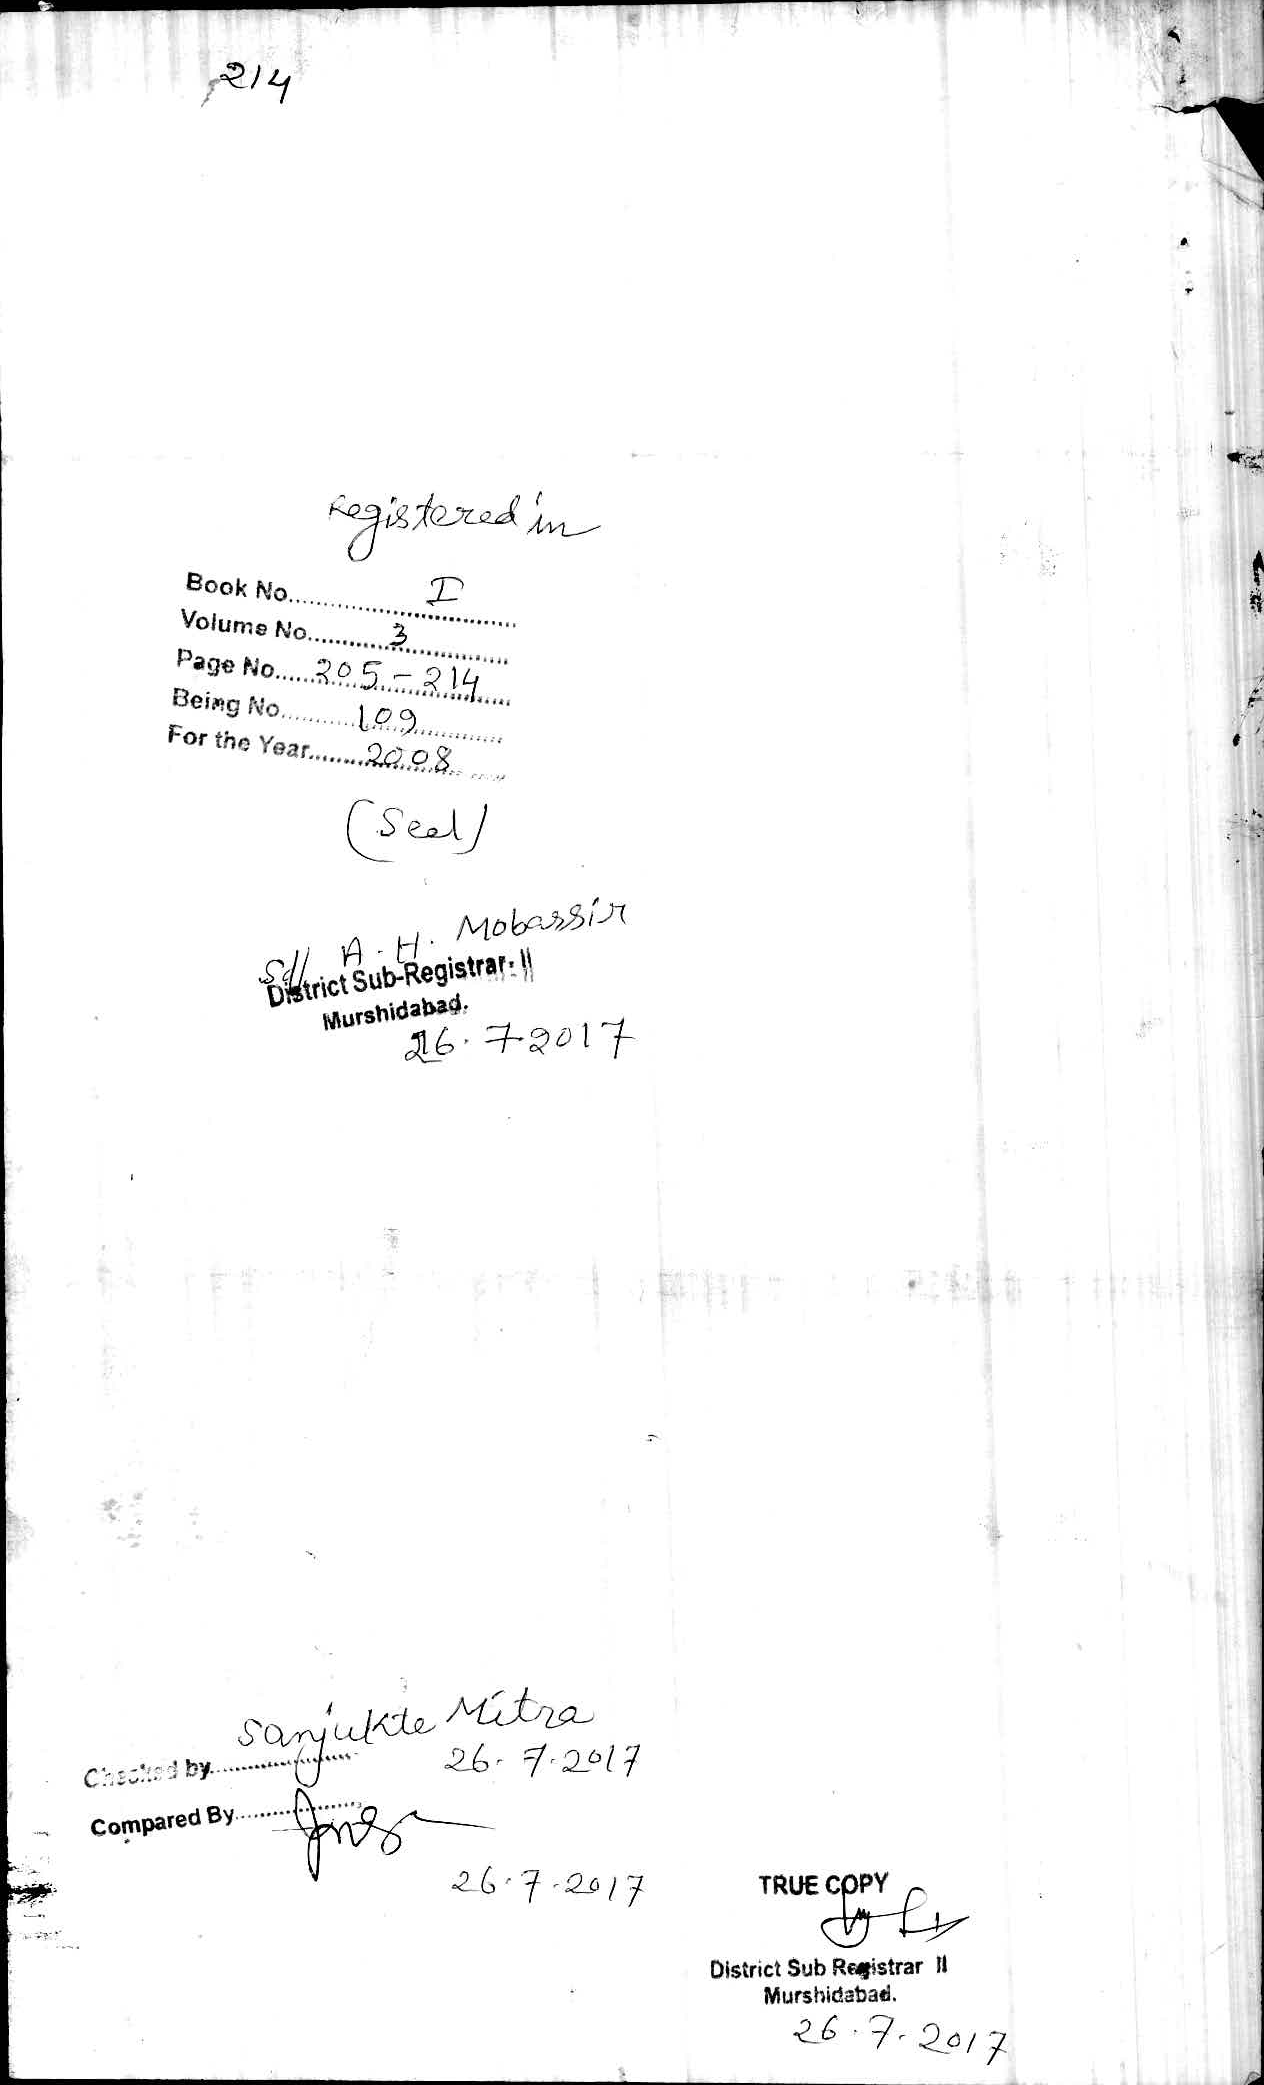 214
Registered in
Book No.......... I
Volume No.......... 3
Page No..... 205 - 214
Being No.......... 109
For the Year........ 2008
(Seal)
Sd// A. H. Mobassir
District Sub-Registrar- II
Murshidabad.
26. 7. 2017
Sanjukte Mitra
Checked by.......... 26. 7. 2017
Compared By..........
26. 7. 2017
TRUE COPY
District Sub Registrar II
Murshidabad.
26. 7. 2017